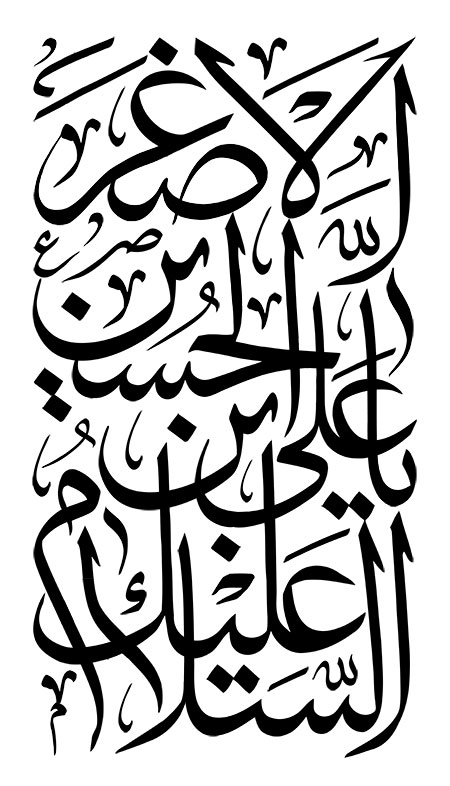 السَّلامُ عَلَيْكَ
يا عَلِيَّ ابْنَ
الْحُسَيْنِ
الْاَصْغَرَ